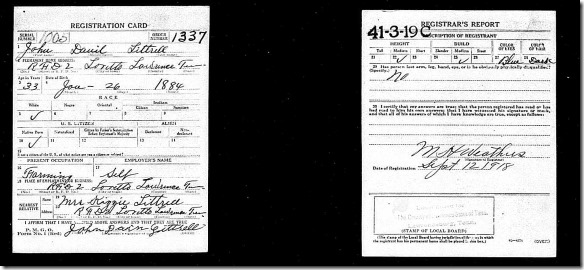 REGISTRATION CARD
SERIAL NUMBER 1700 ORDER NUMBER 1337
John David Littrell
PERMANENT HOME ADDRESS:
R.F.D 2 Loretto Lawrence Tenn
Age in Years Date of Birth
33 Jan - 26 1884
RACE
White Negro Oriental Indian
Citizen Noncitizen
U. S. CITIZEN ALIEN
Native Born Naturalized Citizen by Father's Naturalization Before Registrant's Majority Declarant Non-declarant
If not a citizen of the U. S., of what nation are you a citizen or subject?
PRESENT OCCUPATION EMPLOYER'S NAME
Farming Self
PLACE OF EMPLOYMENT OR BUSINESS:
R.F.D 2 Loretto Lawrence Tenn
NEAREST RELATIVE
Name Mrs Littrell
Address Loretto Lawrence Tenn
I AFFIRM THAT I HAVE VERIFIED ABOVE ANSWERS AND THAT THEY ARE TRUE
P. M. G. O.
Form No. 1 (Red)
John
REGISTRAR'S REPORT
41-3-19 C
DESCRIPTION OF REGISTRANT
HEIGHT BUILD COLOR OF EYES COLOR OF HAIR
Tall Medium Short Slender Medium Stout
Blue Dark
Has person lost arm, leg, hand, eye, or is he obviously physically disqualified?
(Specify.) No
I certify that my answers are true; that the person registered has read or has
had read to him his own answers; that I have witnessed his signature or mark,
and that all of his answers of which I have knowledge are true, except as follows:
(Signature of Registrar)
Date of Registration Sept 12 1918
(STAMP OF LOCAL BOARD)
(The stamp of the Local Board having jurisdiction of the area in which
the registrant has his permanent home shall be placed in this box.)
(OVER)